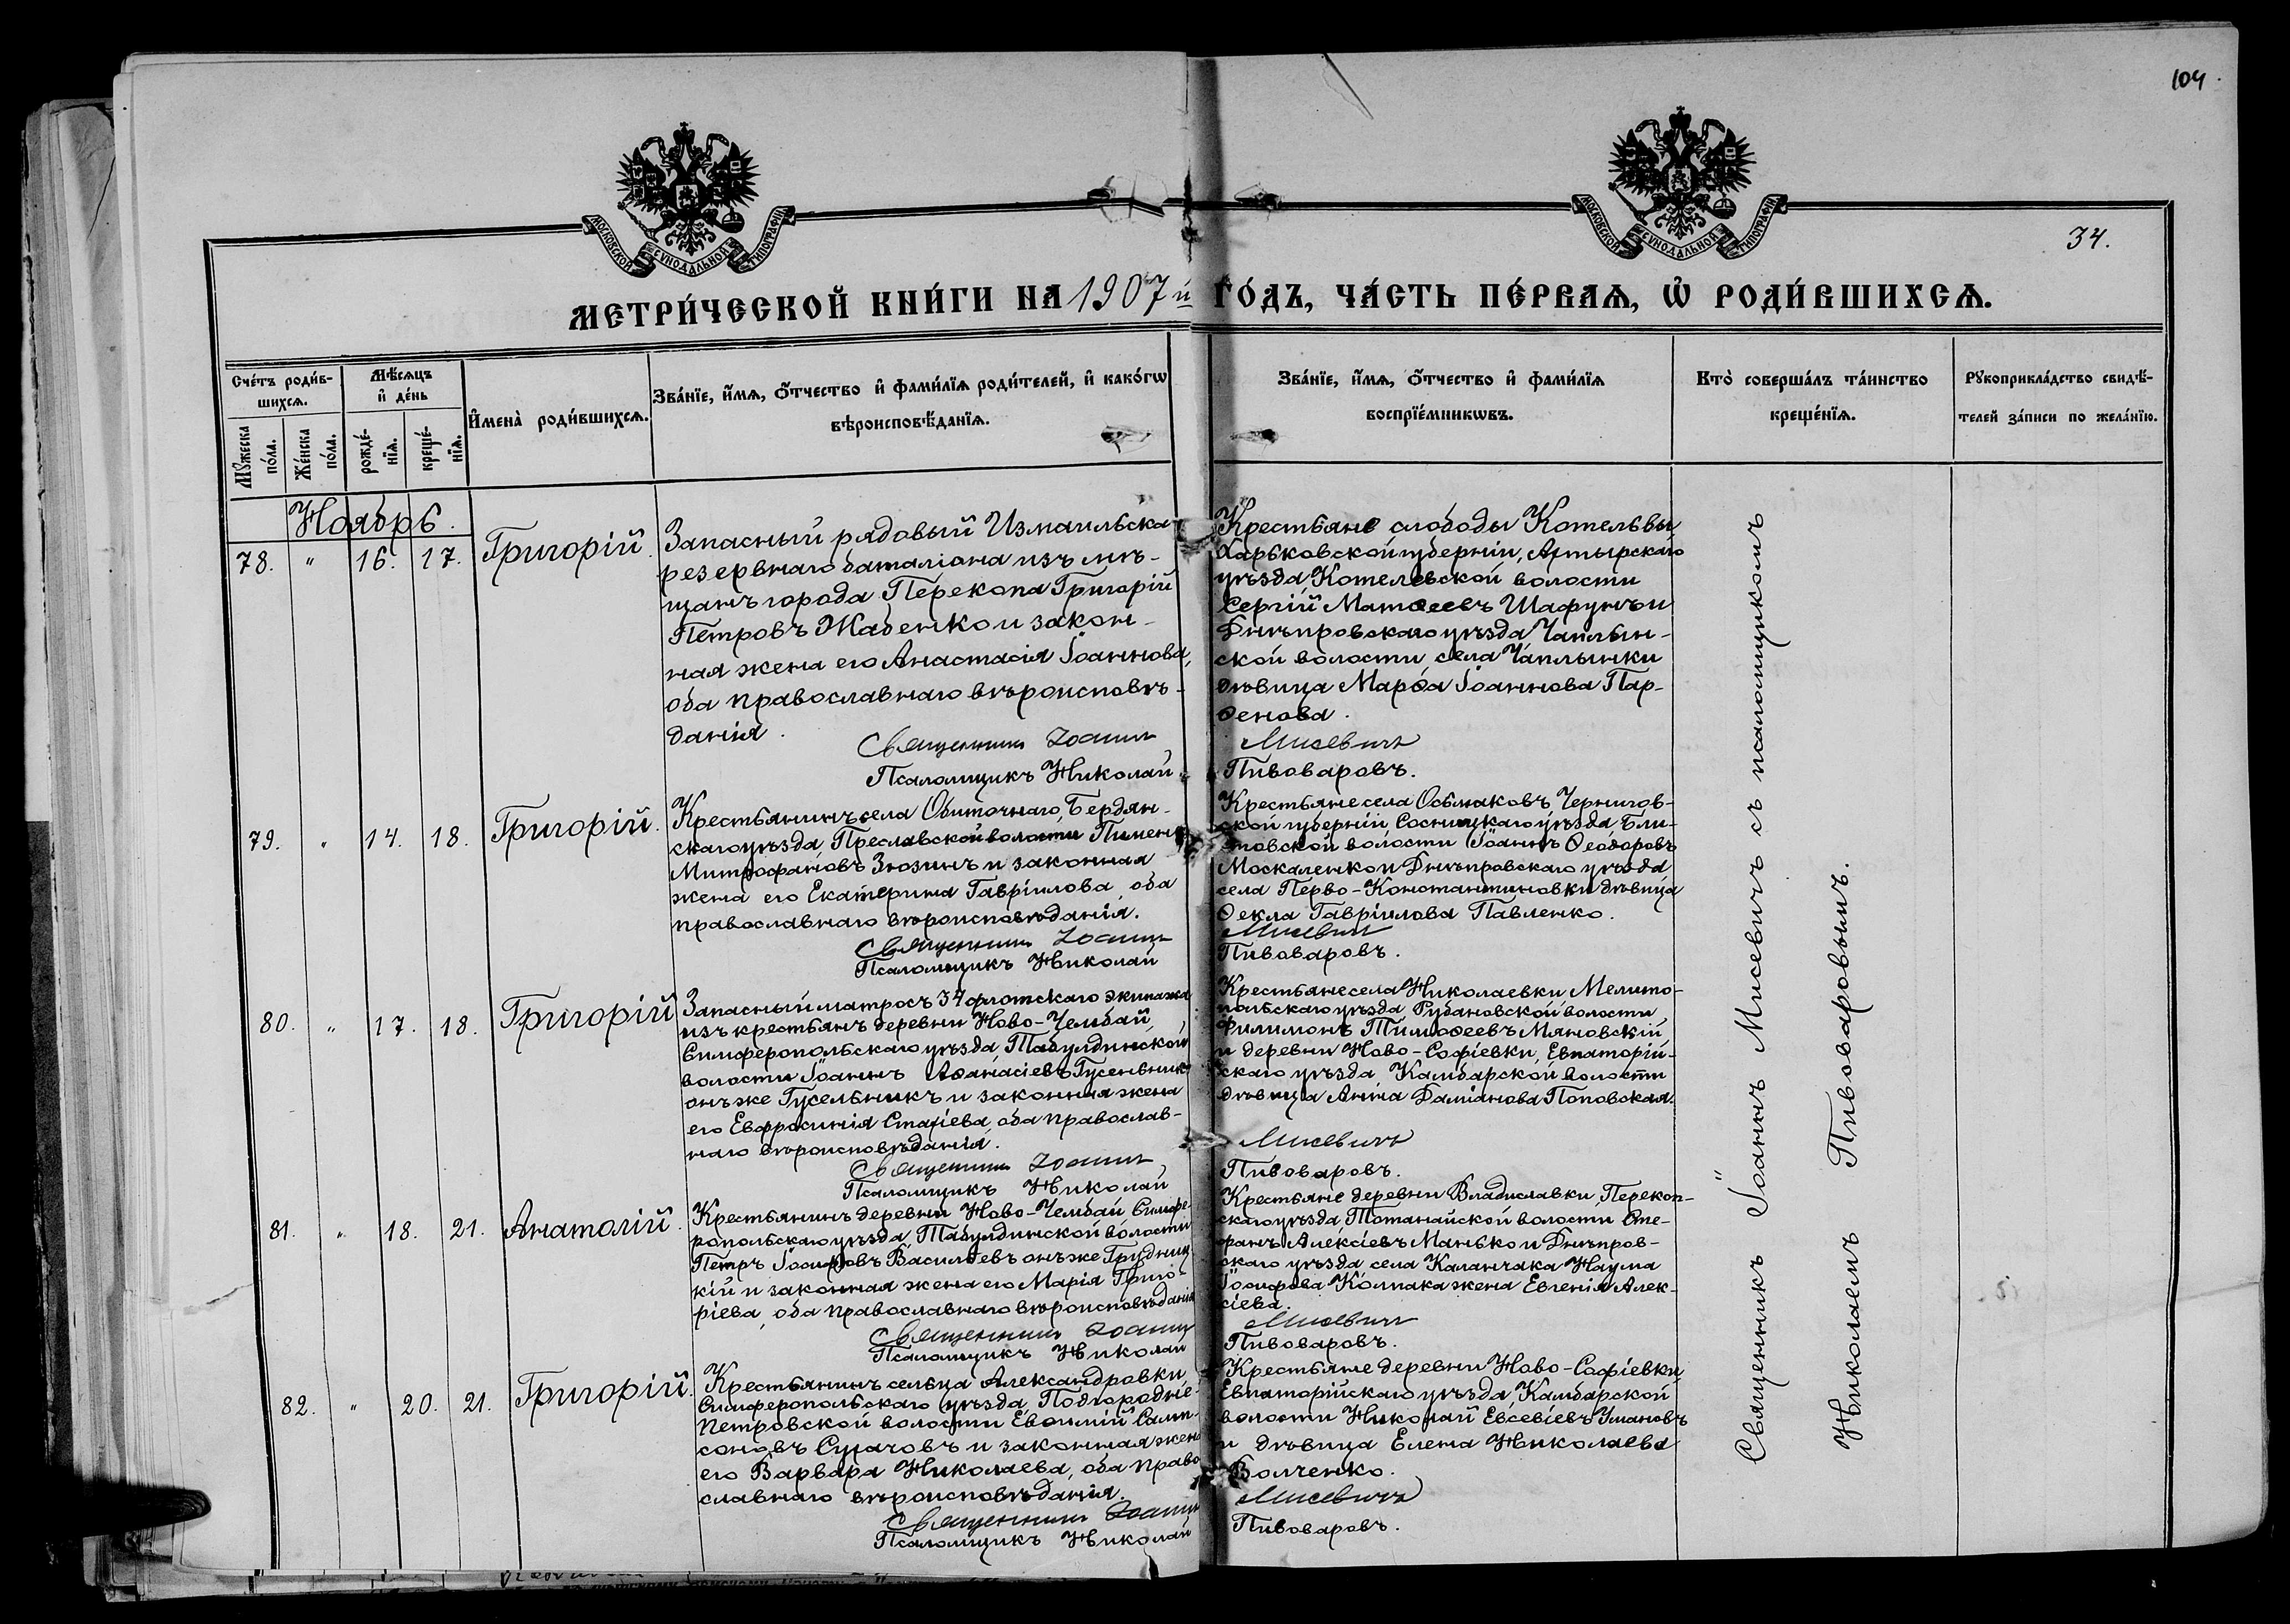 104
34.
МОСКОВСКОЙ СѴНОДАЛЬНОЙ ТИПОГРАФІИ
МОСКОВСКОЙ СѴНОДАЛЬНОЙ ТИПОГРАФІИ
МЕТРИ́ЧЕСКОЙ КНИ́ГИ НА 1907 й ГО́ДЪ, ЧА́СТЬ ПЕ́РВАѦ, Ѡ҆ РОДИ́ВШИХСѦ.
Сче́тъ роди́в-
шихсѧ.
Мꙋ́жеска по́ла.
Же́нска по́ла.
Мѣ́сѧцъ
и҆ де́нь
рожде́-
нїѧ.
креще́-
нїѧ.
И҆мена̀ роди́вшихсѧ.
Зва́нїе, и҆́мѧ, ѻ҆́тчество и҆ фами́лїѧ роди́телей, и҆ како́гѡ
вѣроисповѣ́данїѧ.
Зва́нїе, и҆́мѧ, ѻ҆́тчество и҆ фами́лїѧ
воспрїе́мникѡвъ.
Кто̀ соверша́лъ та́инство
креще́нїѧ.
Рꙋкоприкла́дство свидѣ́-
телей за́писи по жела́нїю.
Ноябрь.
78. " 16. 17. Григорій.
Запасный рядовый Измаильска
резервнаго баталіона изъ мѣ-
щанъ города Перекопа Григорій
Петровъ Жабенко и закон-
ная жена его Анастасія Іоаннова,
оба православнаго вѣроисповѣ-
данія.
Священникъ Іоаннъ
Псаломщикъ Николай
Крестьяне слободы Котельвы
Харьковской губерніи, Ахтырскаго
уѣзда, Котелевской волости
Сергій Матѳеевъ Шафунъ и
Днѣпровскаго уѣзда Чаплын-
ской волости, села Чаплынки
дѣвица Марѳа Іоаннова Пар-
ѳенова.
Мисевичъ
Пивоваровъ.
79. " 14. 18. Григорій.
Крестьянинъ села Обиточнаго, Бердян-
скаго уѣзда, Преславской волости Пименъ
Митрофановъ Зюзинъ и законная
жена его Екатерина Гавріилова, оба
православнаго вѣроисповѣданія.
Священникъ Іоаннъ
Псаломщикъ Николай
Крестьяне села Осьмаковъ Чернигов-
ской губерніи, Сосницкаго уѣзда, Бли-
стовской волости Іоаннъ Ѳеодоровъ
Москаленко и Днѣпровскаго уѣзда
села Перво-Константиновки дѣвица
Ѳекла Гавріилова Павленко.
Мисевичъ
Пивоваровъ.
80. " 17. 18. Григорій
Запасный матросъ 34 флотскаго экипажа
изъ крестьянъ деревни Ново-Чембай,
Симферопольскаго уѣзда, Табулдинской
волости Іоаннъ Аѳанасіевъ
онъ же Гусельникъ и законная жена
его Евфросинія, оба православ-
наго вѣроисповѣданія.
Священникъ Іоаннъ
Псаломщикъ Николай
Крестьяне села Николаевки Мелито-
польскаго уѣзда Рубановской волости
Филимонъ Тимоѳеевъ Мяновскій
и деревни Ново-Софіевки, Евпаторій-
скаго уѣзда, Камбарской волости
дѣвица Анна Даміанова Поповская.
Мисевичъ
Пивоваровъ.
81. " 18. 21. Анатолій.
Крестьянинъ деревни Ново-Чембай Симфе-
ропольскаго уѣзда, Табулдинской волости
Петръ Іосифовъ Васильевъ онъ же Грудниц-
кій и законная жена его Марія Григо-
ріева, оба православнаго вѣроисповѣданія
Священникъ Іоаннъ
Псаломщикъ Николай
Крестьяне деревни Владиславки, Перекоп-
скаго уѣзда, Тотанайской волости Сте-
фанъ Алексіевъ Манько и Днѣпров-
скаго уѣзда села Каланчака Наума
Іосифова Колпака жена Евгенія Алек-
сіева.
Мисевичъ
Пивоваровъ.
82. " 20. 21. Григорій.
Крестьянинъ сельца Александровки,
Симферопольскаго уѣзда, Подгородне-
Петровской волости Евѳимій Самп-
соновъ Сугачовъ и законная жена
его Варвара Николаева, оба право
славнаго вѣроисповѣданія.
Священникъ Іоаннъ
Псаломщикъ Николай
Крестьяне деревни Ново-Софіевки,
Евпаторійскаго уѣзда, Камбарской
волости Николай Евсевіевъ Умановъ
и дѣвица Елена Николаева
Волченко.
Мисевичъ
Пивоваровъ.
Священникъ Іоаннъ Мисевичъ съ псаломщикомъ
Николаемъ Пивоваровымъ.